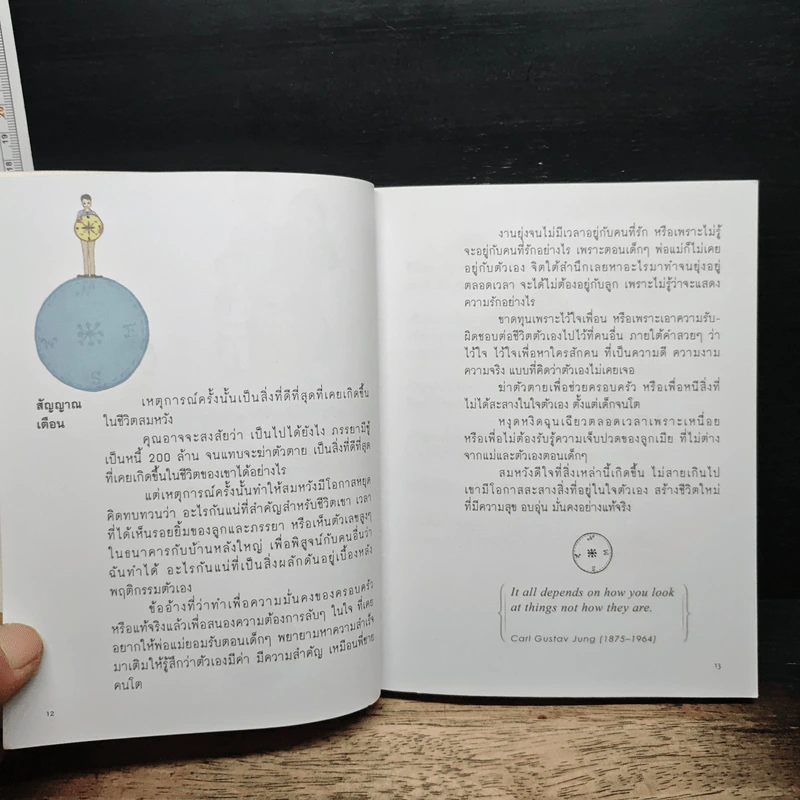 สัญญาณ
เตือน
เหตุการณ์ครั้งนั้นเป็นสิ่งที่ดีที่สุดที่เคยเกิดขึ้น
ในชีวิตสมหวัง
คุณอาจจะสงสัยว่า เป็นไปได้ยังไง ภรรยามีชู้
เป็นหนี้ 200 ล้าน จนแทบจะฆ่าตัวตาย เป็นสิ่งที่ดีที่สุด
ที่เคยเกิดขึ้นในชีวิตของเขาได้อย่างไร
แต่เหตุการณ์ครั้งนั้นทำให้สมหวังมีโอกาสหยุด
คิดทบทวนว่า อะไรกันแน่ที่สำคัญสำหรับชีวิตเขา เวลา
ที่ได้เห็นรอยยิ้มของลูกและภรรยา หรือเห็นตัวเลขสูงๆ
ในธนาคารกับบ้านหลังใหญ่ เพื่อพิสูจน์กับคนอื่นว่า
ฉันทำได้ อะไรกันแน่ที่เป็นสิ่งผลักดันอยู่เบื้องหลัง
พฤติกรรมตัวเอง
ข้ออ้างที่ว่าทำเพื่อความมั่นคงของครอบครัว
หรือแท้จริงแล้วเพื่อสนองความต้องการลับๆ ในใจ ที่เคย
อยากให้พ่อแม่ยอมรับตอนเด็กๆ พยายามหาความสำเร็จ
มาเติมให้รู้สึกว่าตัวเองมีค่า มีความสำคัญ เหมือนพี่ชาย
คนโต
12
งานยุ่งจนไม่มีเวลาอยู่กับคนที่รัก หรือเพราะไม่รู้
จะอยู่กับคนที่รักอย่างไร เพราะตอนเด็กๆ พ่อแม่ก็ไม่เคย
อยู่กับตัวเอง จิตใต้สำนึกเลยหาอะไรมาทำจนยุ่งอยู่
ตลอดเวลา จะได้ไม่ต้องอยู่กับลูก เพราะไม่รู้ว่าจะแสดง
ความรักอย่างไร
ขาดทุนเพราะไว้ใจเพื่อน หรือเพราะเอาความรับ-
ผิดชอบต่อชีวิตตัวเองไปไว้ที่คนอื่น ภายใต้คำสวยๆ ว่า
ไว้ใจ ไว้ใจเพื่อหาใครสักคน ที่เป็นความดี ความงาม
ความจริง แบบที่คิดว่าตัวเองไม่เคยเจอ
ฆ่าตัวตายเพื่อช่วยครอบครัว หรือเพื่อหนีสิ่งที่
ไม่ได้สะสางในใจตัวเอง ตั้งแต่เด็กจนโต
หงุดหงิดฉุนเฉียวตลอดเวลาเพราะเหนื่อย
หรือเพื่อไม่ต้องรับรู้ความเจ็บปวดของลูกเมีย ที่ไม่ต่าง
จากแม่และตัวเองตอนเด็กๆ
สมหวังดีใจที่สิ่งเหล่านี้เกิดขึ้น ไม่สายเกินไป
เขามีโอกาสสะสางสิ่งที่อยู่ในใจตัวเอง สร้างชีวิตใหม่
ที่มีความสุข อบอุ่น มั่นคงอย่างแท้จริง
It all depends on how you look
at things not how they are.
Carl Gustav Jung (1875–1964)
13